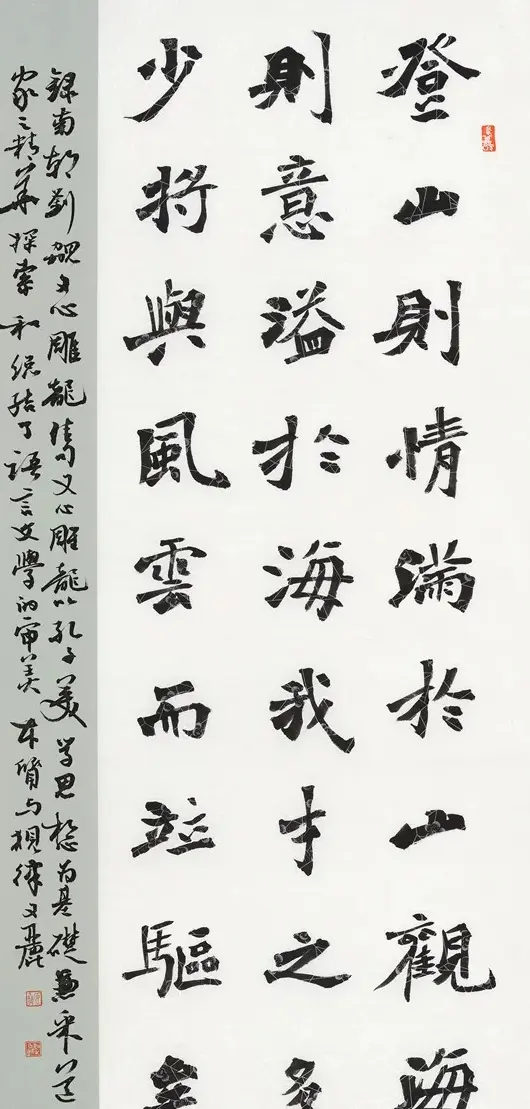 登山則情滿於山觀海
則意溢於海我才之多
少將與風雲而竝驅矣
録南朝劉勰文心雕龍句文心雕龍以孔子美學思想為基礎兼采道
家之精華探索和總結了語言文學的审美本質与規律文麗